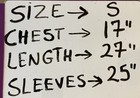 SIZE → S
CHEST → 17"
LENGTH → 27"
SLEEVES → 25"